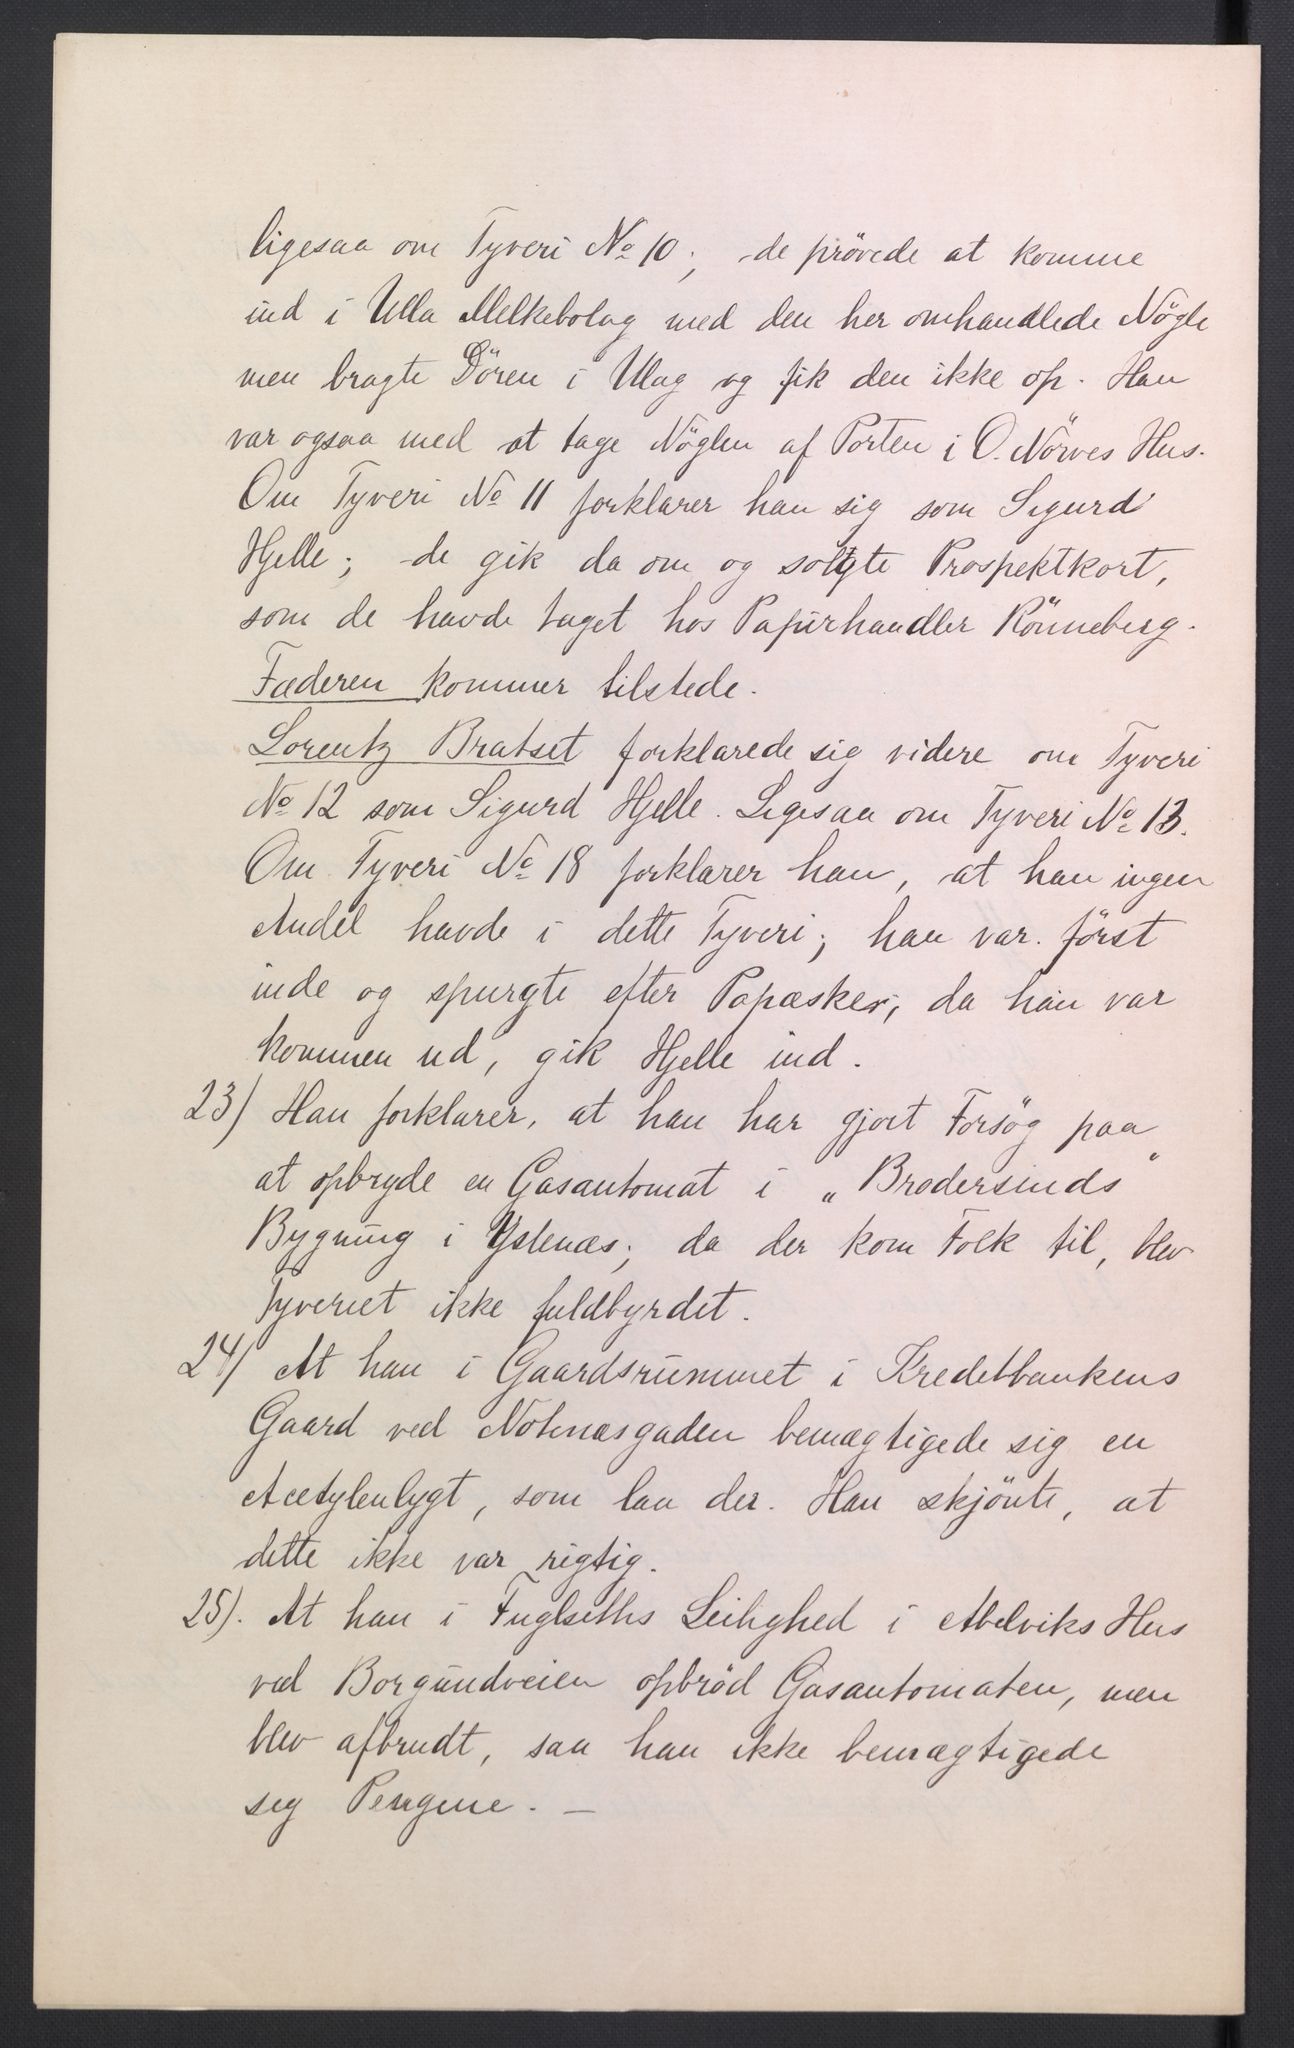 ligesaa om Tyveri No 10; de prövede at komme
ind i Ulla Melkebolag med den her omhandlede Nögle
men bragte Dören i Ulag og fik den ikke op. Han
var ogsaa med at tage Nöglen af Porten i O. Nörves Hus.
Om Tyveri No 11 forklarer han sig som Sigurd
Hjelle; de gik da om og solgte Prospektkort,
som de havde taget hos Papirhandler Rönneberg.
Faderen kommer tilstede.
Lorentz Bratset forklarede sig videre om Tyveri
No 12 som Sigurd Hjelle. Ligesaa om Tyveri No 13.
Om Tyveri No 18 forklarer han, at han ingen
Andel havde i dette Tyveri; han var först
inde og spurgte efter Papæsker; da han var
kommen ud, gik Hjelle ind.
23) Han forklarer, at han har gjort Forsög paa
at opbryde en Gasautomat i „Brodersinds"
Bygning i Yslenæs; da der kom Folk til, blev
Tyveriet ikke fuldbyrdet.
24) At han i Gaardsrummet i Kreditbankens
Gaard ved Notenæsgaden bemægtigede sig en
Acetylenlygt, som laa der. Han skjönte, at
dette ikke var rigtig.
25). At han i Fuglseths Leilighed i Abelviks Hus
ved Borgundveien opbröd Gasautomaten, men
blev afbrudt, saa han ikke bemægtigede
sig Pengene. —